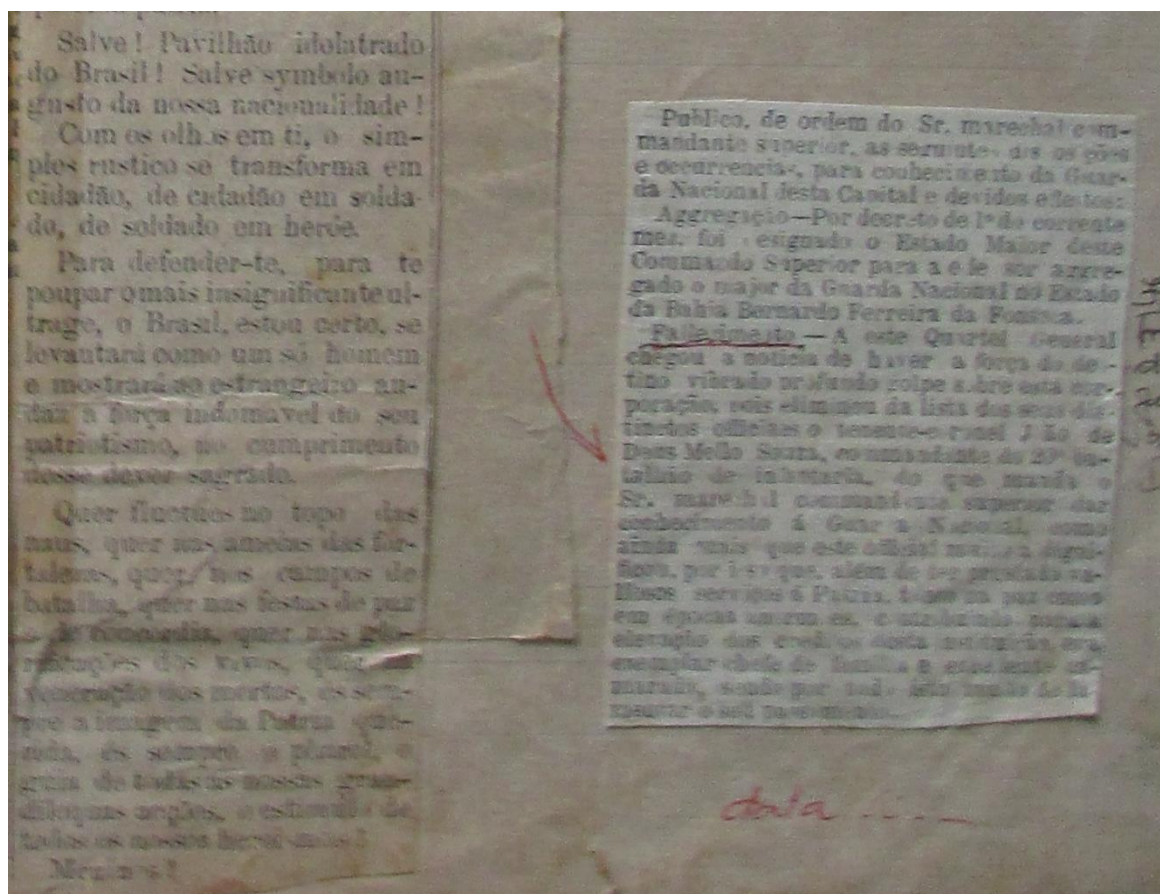 Salve! Pavilhão idolatrado
do Brasil! Salve symbolo au-
gusto da nossa nacionalidade!
Com os olhos em ti, o sim-
ples rustico se transforma em
cidadão, de cidadão em solda-
do, de soldado em heróe.
Para defender-te, para te
poupar o mais insignificante ul-
trage, o Brasil, estou certo, se
levantará como um só homem
e mostrará ao estrangeiro au-
daz a força indomavel do seu
patriotismo, no cumprimento
desse dever sagrado.
Quer fluctues no topo das
naus, quer nas ameias das for-
talezas, quer nos campos de
batalha, quer nas festas de paz
e de concordia, quer nas
dos vivos,
veneração dos mortos, és sem-
pre a imagem da Patria que-
rida, és sempre o pharol, o
guia de todas as nossas gran-
diloquas acções, o estimulo de
todos os nossos heroismos!
Meninos!
Publico, de ordem do Sr. marechal com-
mandante superior, as seguintes dis os ções
e occurrencias, para conhecimento da Guar-
da Nacional desta Capital e devidos effeitos:
Aggregação—Por decreto de 1º do corrente
mez, foi esignado o Estado Maior deste
Commando Superior para a elle ser aggre-
gado o major da Guarda Nacional no Estado
da Bahia Bernardo Ferreira da Fonseca.
Fallecimento.—A este Quartel General
chegou a noticia de haver a força do des-
tino vibrado profundo golpe sobre esta cor-
poração, pois eliminou da lista dos seus dis-
tinctos officiaes o tenente-coronel João de
Deus Mello Souza, commandante do 29º ba-
talhão de infantaria, do que manda o
Sr. marechal commandante superior dar
conhecimento á Guarda Nacional, como
ainda mais que este official
por isso que, além de ter prestado va-
liosos serviços á Patria, tanto na paz como
em épocas anormaes, contribuindo para a
elevação dos creditos desta instituição, era
exemplar chefe de familia e excellente ca-
marada, sendo por tudo isto
o seu passamento.
data ....